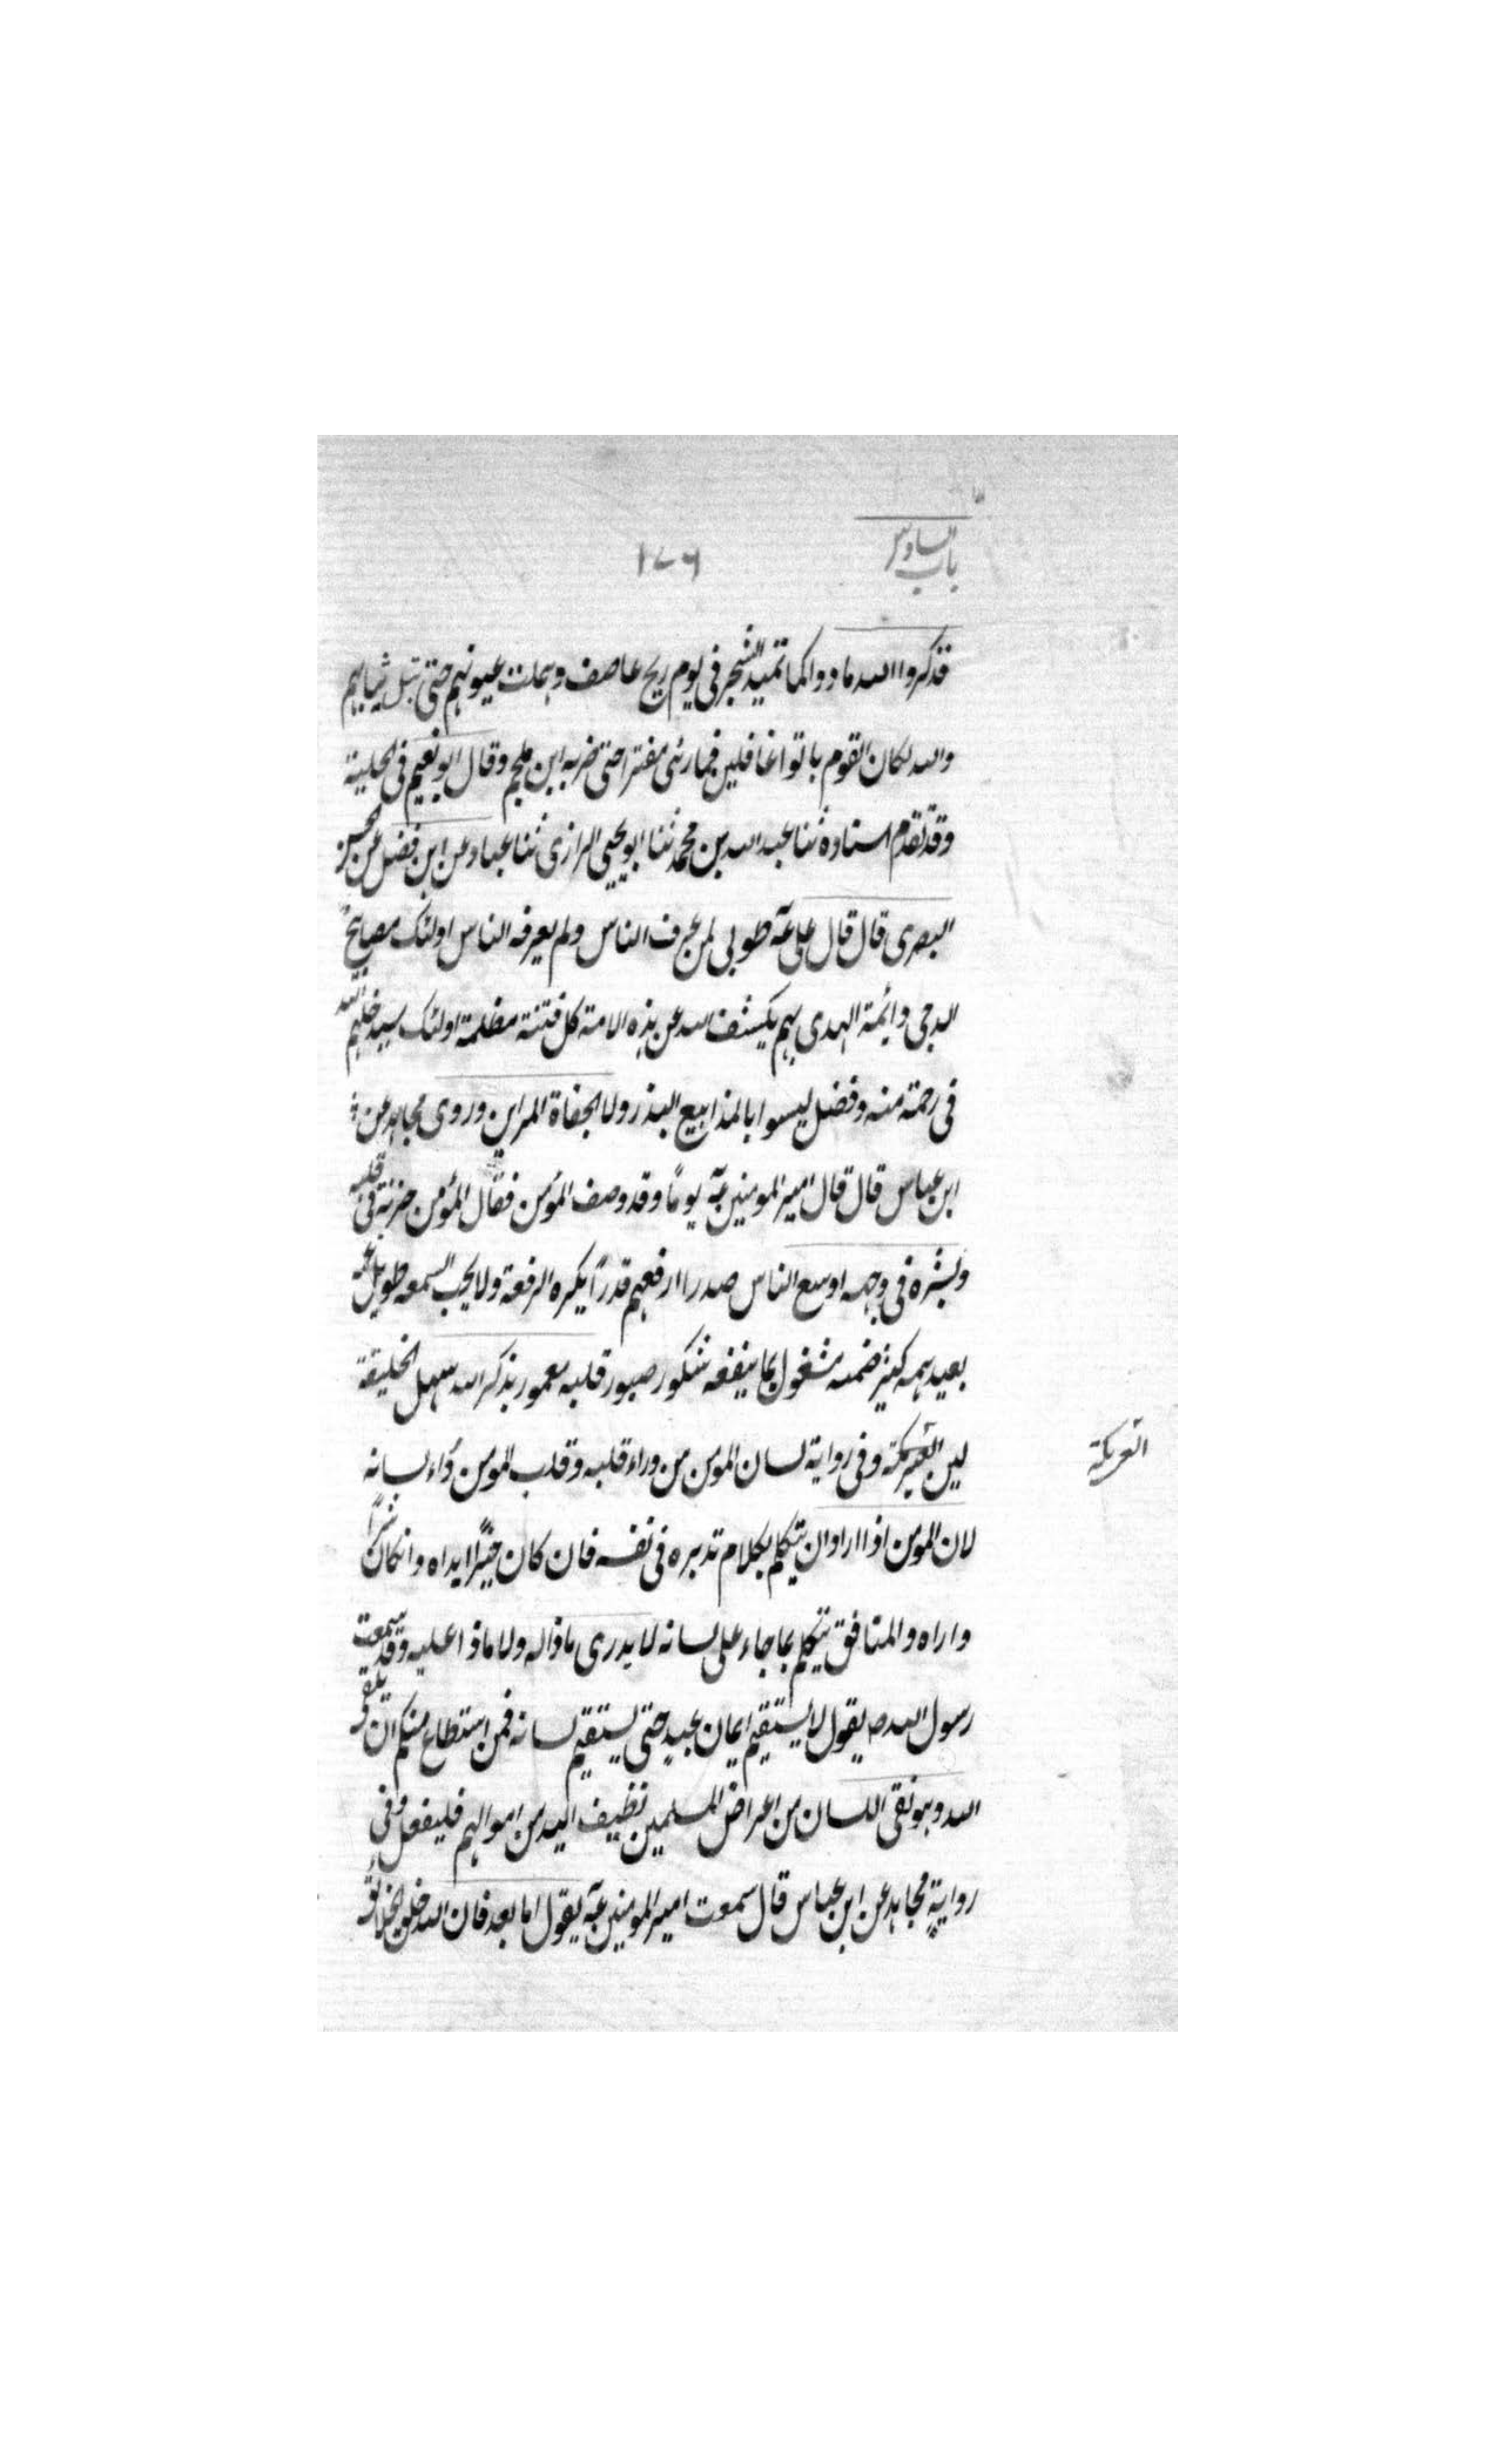 باب السادس
١٧٦
قذكروا الله مادوا كما تميد الشجر فى يوم ريح عاصف وهملت عيونهم حتى تبل ثيابهم
والله لكان القوم باتوا غافلين فما رئى مفترا حتى ضربه ابن ملجم وقال ابو نعيم فى الحلية
وقد تقدم اسناده ثنا عبد الله بن محمد ثنا ابو يحيى الرازى ثنا عباد عن ابن فضل عن الحسن
البصرى قال قال على عه طوبى لمن عرف الناس ولم يعرفه الناس اولئك مصابيح
الدجى وائمة الهدى بهم يكشف الله عن هذه الامة كل فتنة مظلمة اولئك سيدخلهم الله
فى رحمة منه وفضل ليسوا بالمذابيع البذر ولا الجفاة المراين وروى مجاهد عن
ابن عباس قال قال امير المومنين عه يومًا وقد وصف المؤمن فقال المؤمن حزنه فى قلبه
وبشره فى وجهه اوسع الناس صدرا ارفعهم قدرًا يكره الرفعة ولا يحب السمعه طويل غمه
بعيد همه كثير ضمته مشغول بما ينفعه شكور صبور قلبه معمور بذكر الله سهل الخليقة
لين العريكة وفى رواية لسان المومن من وراء قلبه وقلب المومن وراء لسانه
العريكة
لان المومن اذا اراد ان يتكلم بكلام تدبره فى نفسه فان كان خيرًا ابداه وانكان شرًا
واراه والمنافق يتكلم بما جاء على لسانه لا يدرى ماذا له ولا ماذا عليه وقد سمعت
رسول الله ص يقول لا يستقيم ايمان عبد حتى يستقيم لسانه فمن استطاع منكم ان يلقى
الله وهو نقى اللسان من اعراض المسلمين نظيف اليد من اموالهم فليفعل وفى
رواية مجاهد عن ابن عباس قال سمعت امير المومنين عه يقول اما بعد فان الله خلق الخلائق